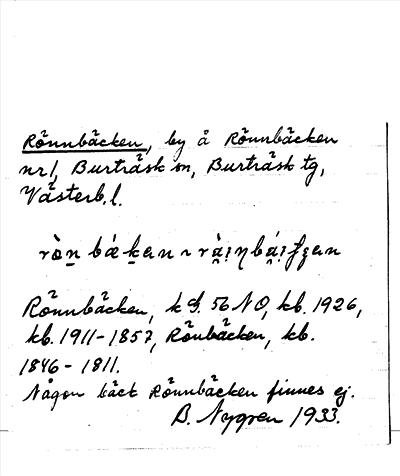 Rönnbäcken, by å Rönnbäcken
nr 1, Burträsk sn, Burträsk tg,
Västerb. l.
Rönnbäcken, k G. 56 NO, kb. 1926,
kb. 1911-1857, Rönbäcken, kb.
1846-1811.
Någon bäck Rönnbäcken finnes ej.
B. Nygren 1933.